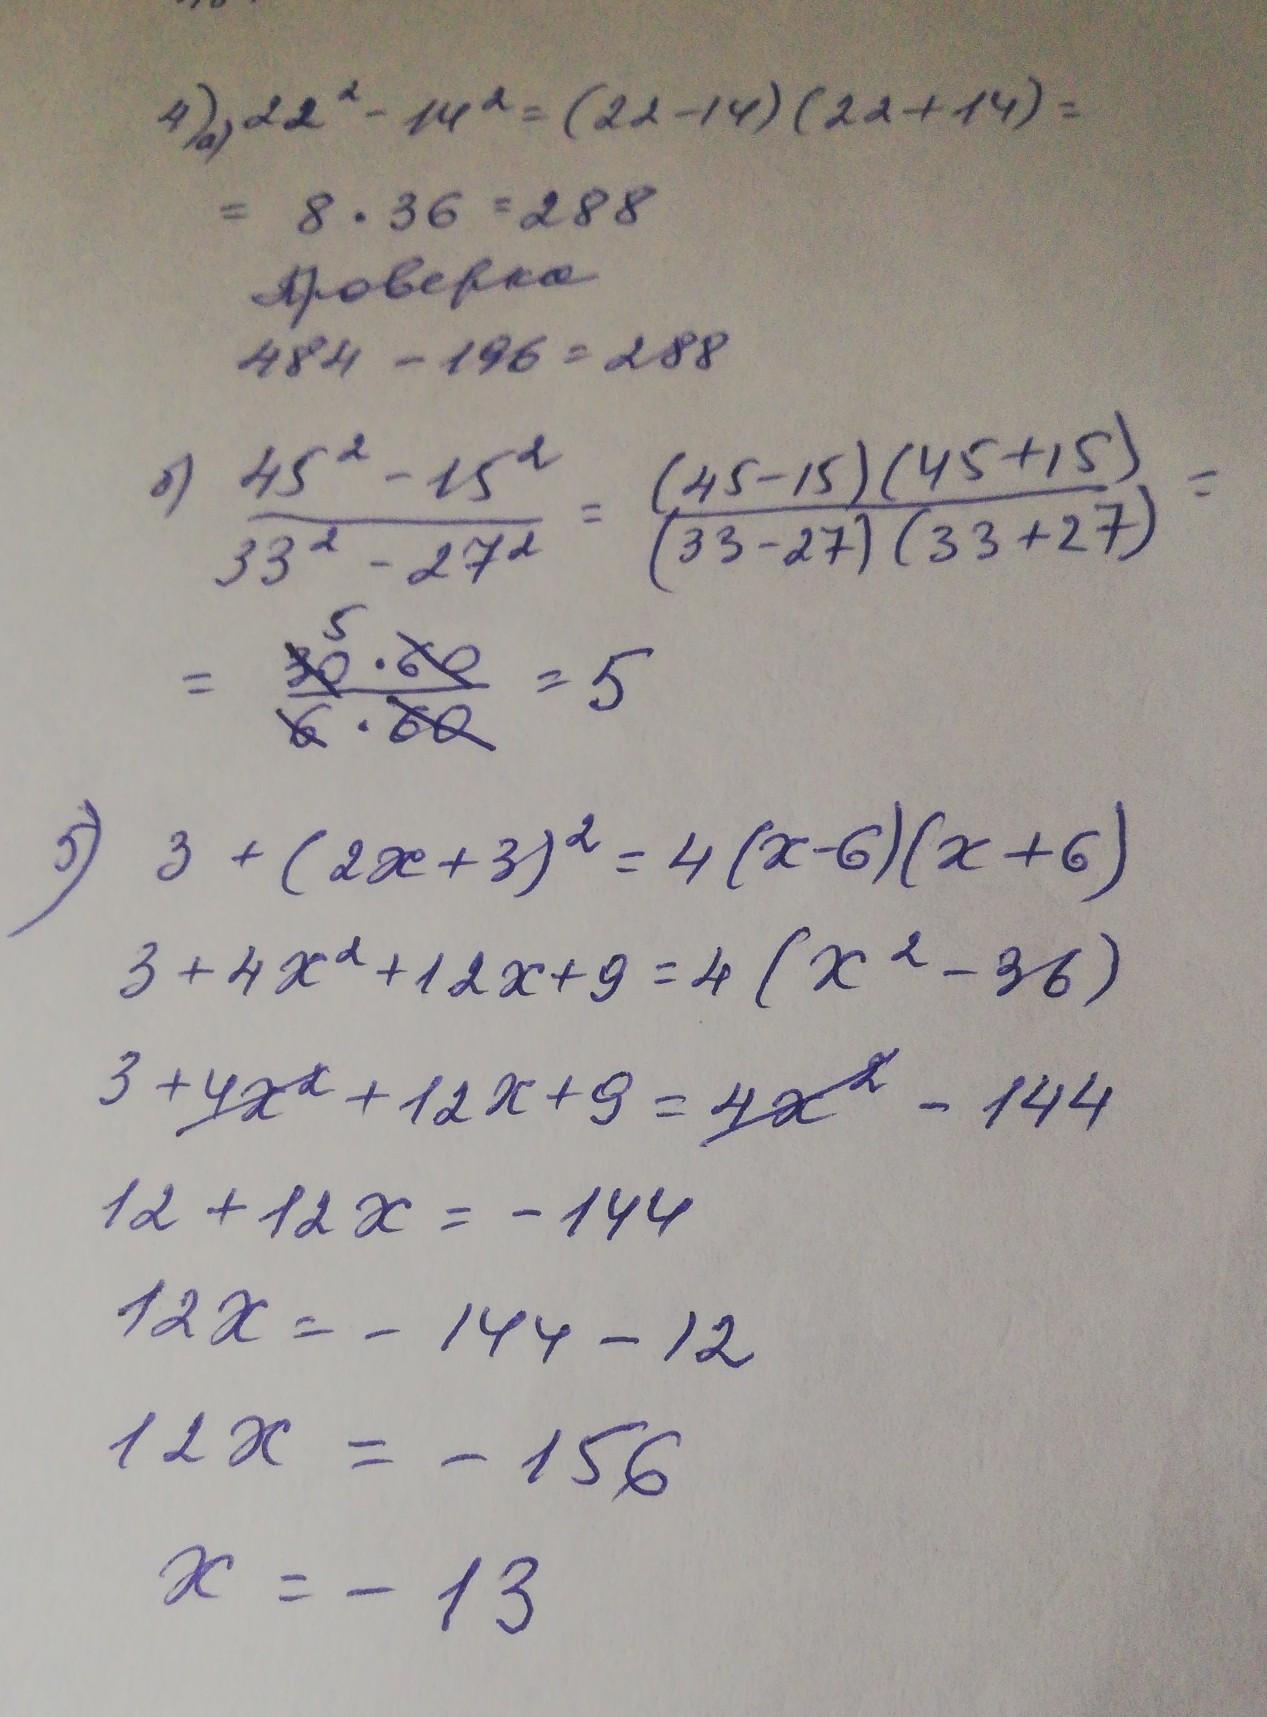 4) а) 22² - 14² = (22-14)(22+14) =
= 8 · 36 = 288
Проверка
484 - 196 = 288
б) (45² - 15²)/(33² - 27²) = ((45-15)(45+15))/((33-27)(33+27)) =
= (30 · 60)/(6 · 60) = 5
5
5) 3 + (2x+3)² = 4(x-6)(x+6)
3 + 4x² + 12x + 9 = 4(x² - 36)
3 + 4x² + 12x + 9 = 4x² - 144
12 + 12x = - 144
12x = - 144 - 12
12x = - 156
x = - 13